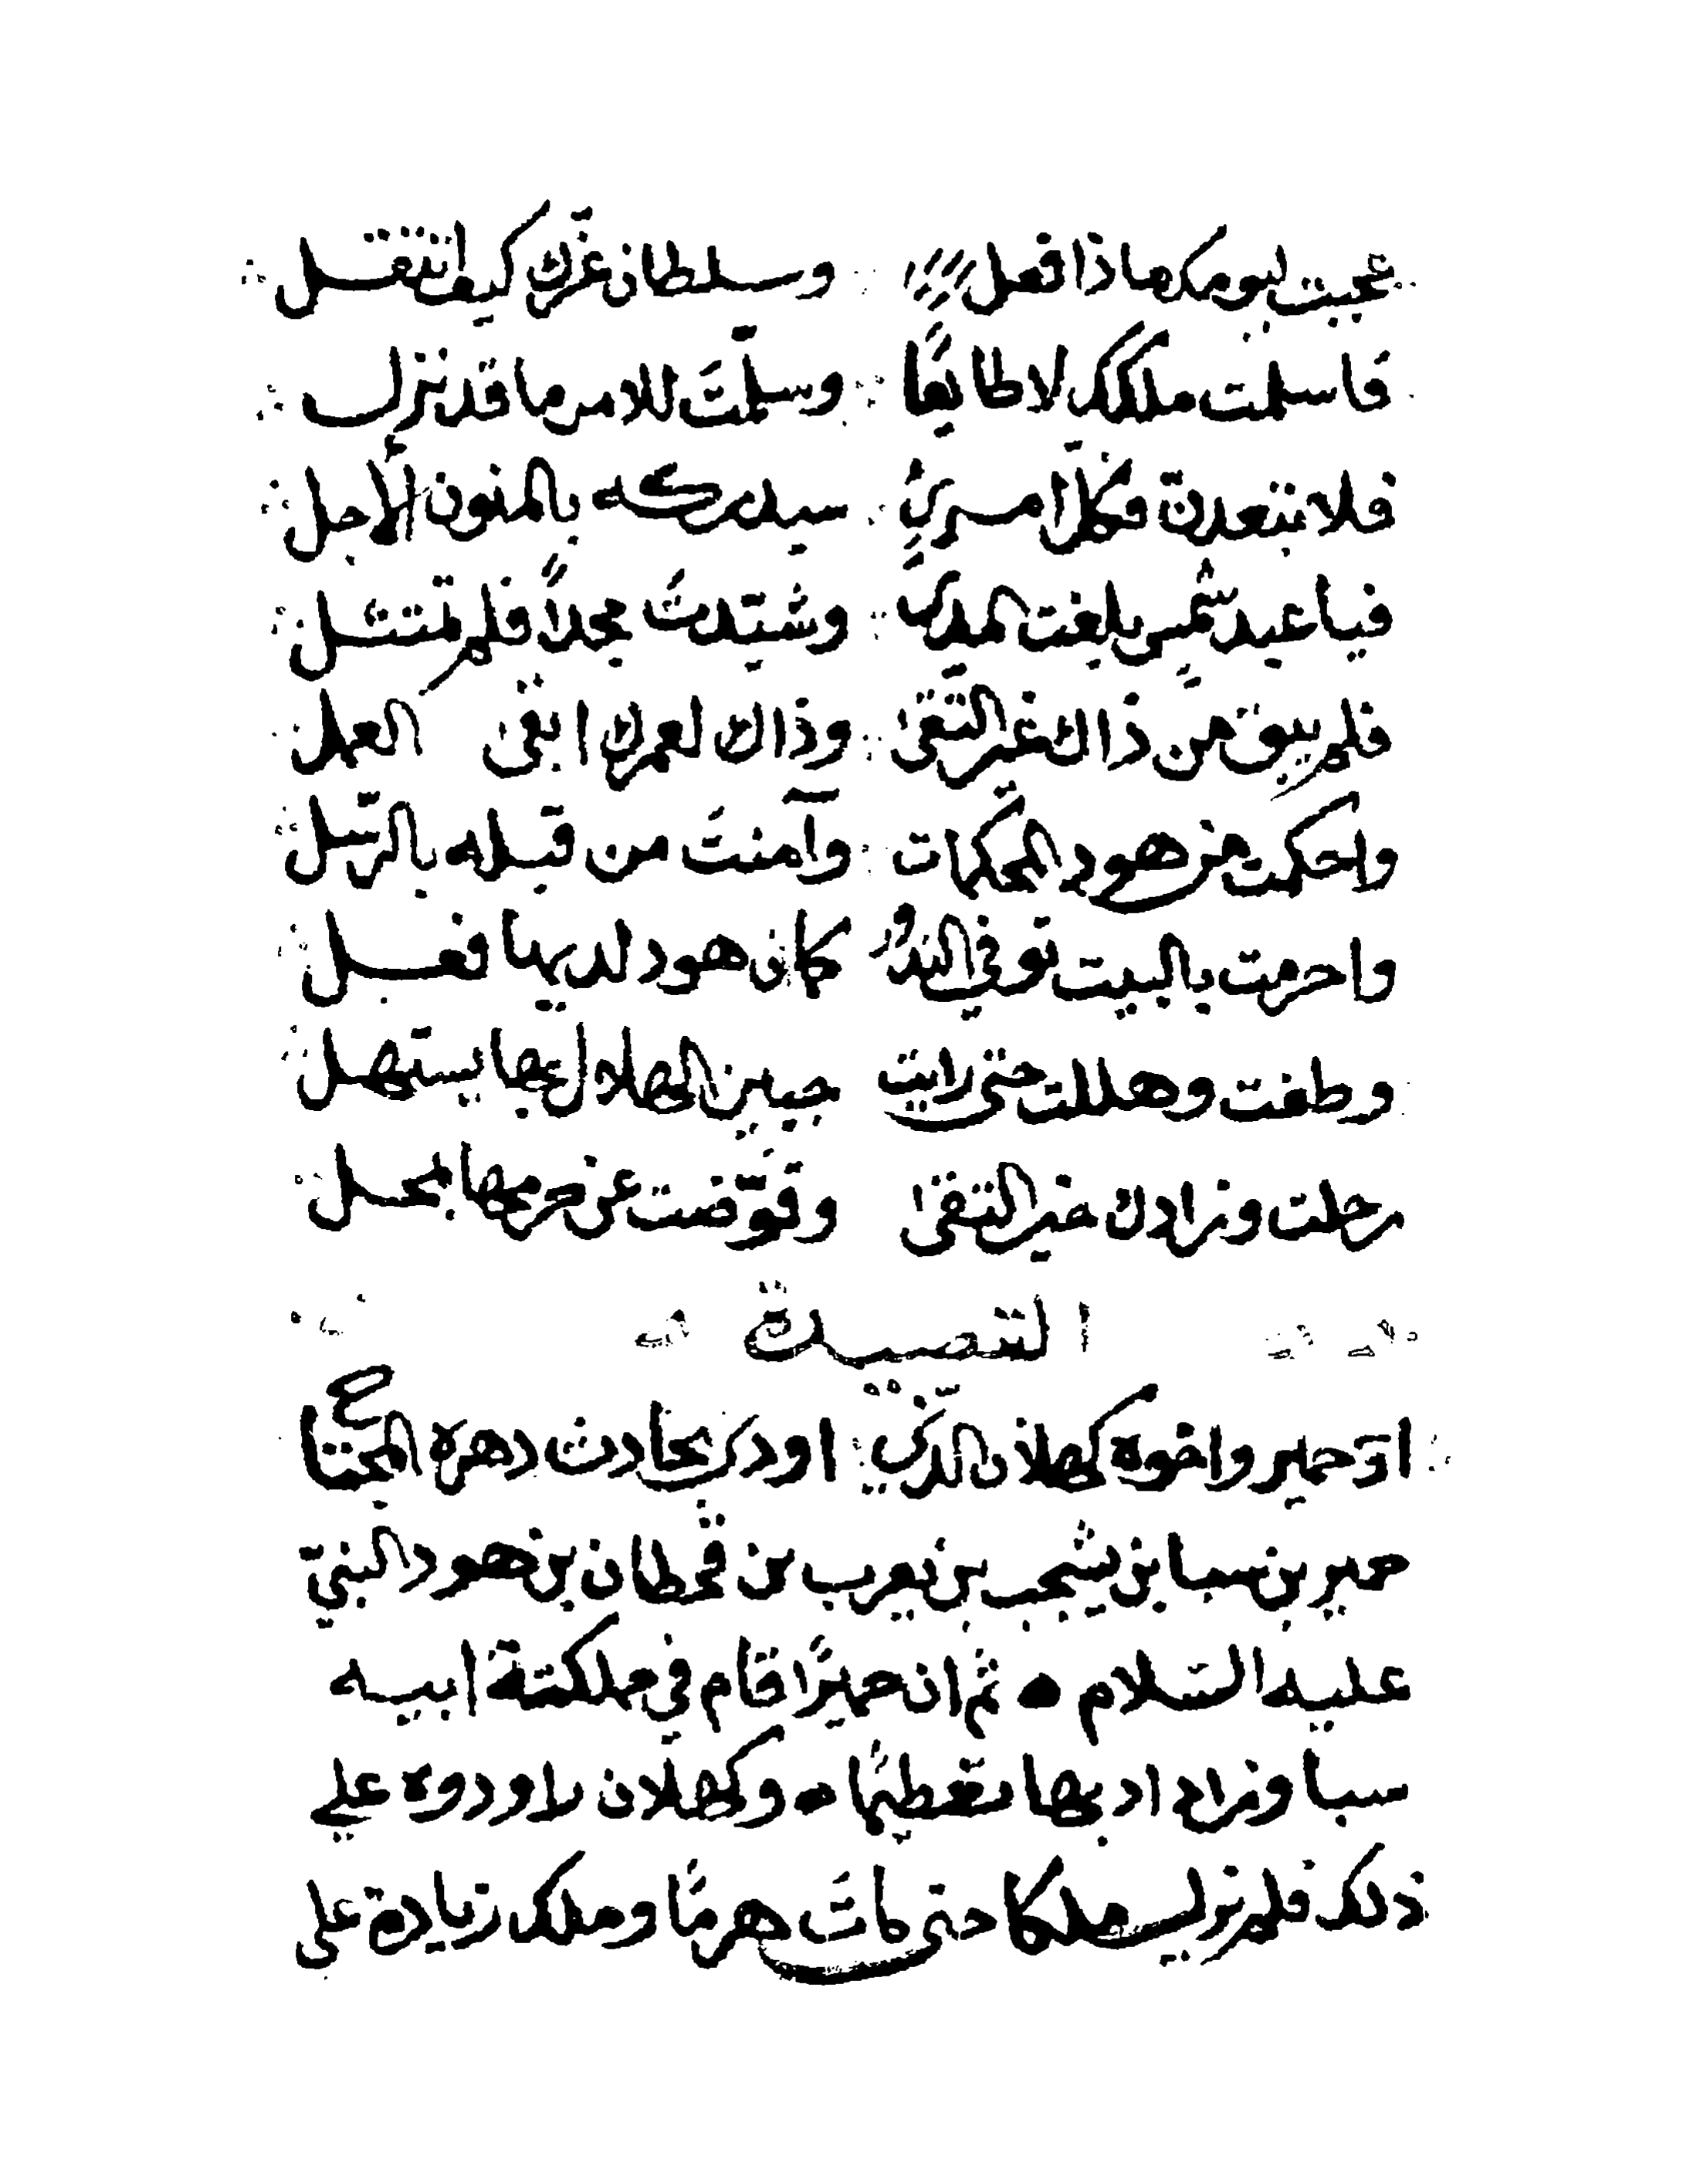 عجبت ليومك ماذا فعل وسلطان عزك كيف انتقل
فاسلمت ملكك لا طايعًا وسلّمتَ للامر ما قد نزل
فلا تبعدن فكلّ امرئٍ سيدركه بالمنون الأجل
فيا عبد شمسٍ بلغت المدى وشيّدتَ مجدًا فلم تنتثل
فلم يبق من ذاك غير التقى وذاك لعمرك ابقى العمل
واحكمت من هود المحكمات وآمنتَ من قبله بالرّسل
واحرمت بالبيت توفي النذور كان هود لديها فعل
وطفت وهللت حتى رايت جبين الهلال بها يستهل
رحلت وزادك خير التقى وقوّضت عن حرمها بمحل
القصيدة
او حمير واخوه كهلان الذي اودى بحادث دهره المجتاح
حمير بن سبا بن يشجب بن يعرب بن قحطان بن هود النبيّ
عليه السّلام ثم ان حميرًا قام في مملكته ابيه
سبا وزاد بها تعظيمًا وكهلان وردوه علي
ذلك فلم يزل ملكا حتى مات هرمًا وملك زيادة على